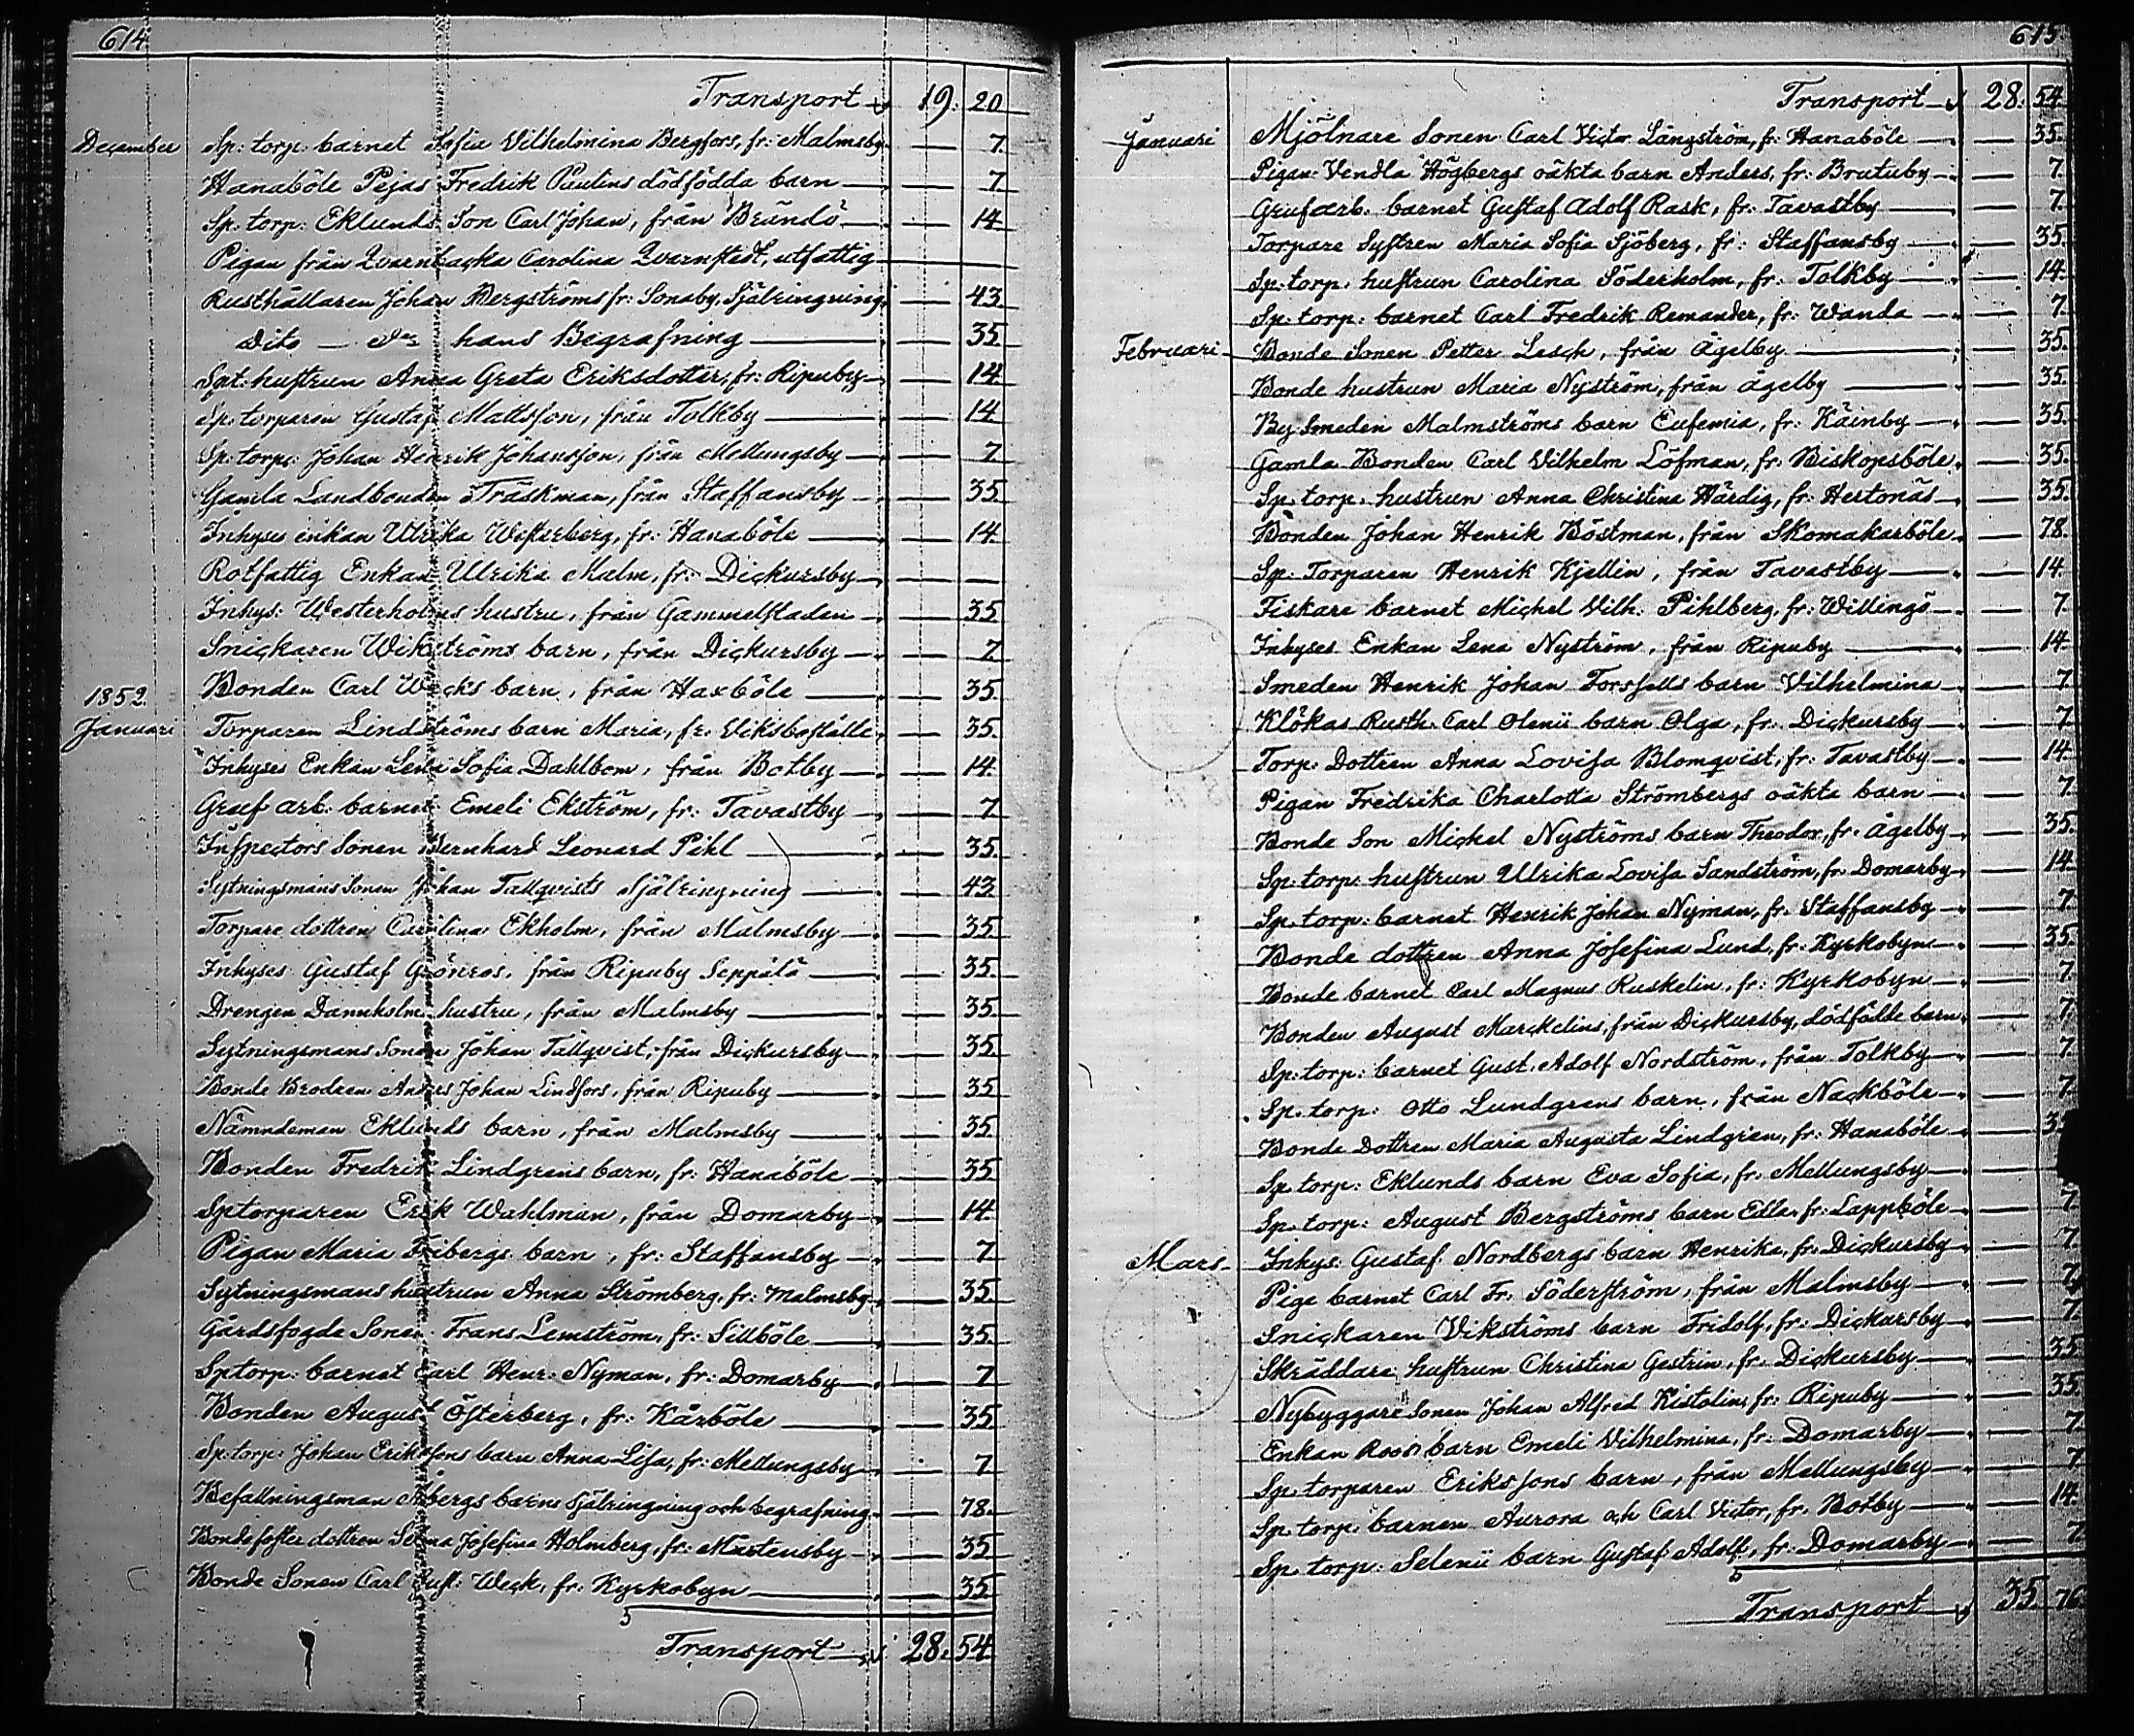 614
Transport 19. 20
December Sp: torp: barnet Sofia Vilhelmina Bergfors, fr: Malmsby 7.
Hanaböle Pejas Fredrik Paulins dödfödda barn 7
Sp. torp: Eklunds Son Carl Johan, från Brändö 14
Pigan från Qvarnbacka Carolina Qvarnstedt, utfattig
Rusthållaren Johan Bergströms fr: Sonaby, Själringning 43.
Dito hans Begrafning 35
hustrun Anna Greta Eriksdotter, fr: Ripuby 14
Sp: torparen Gustaf Mattsson, från Tolkby 14
Sp: torp: Johan Henrik Johansson, från Mellungsby 7
Gamla Landbonden Träskman, från Staffansby 35
Inhyses enkan Ulrika Westerberg, fr: Hanaböle 14
Rotfattig Enkan Ulrika Malm, fr: Dickursby
Inhys: Westerholms hustru, från Gammelstaden 35
Snickaren Wikströms barn, från Dickursby 7
1852. Bonden Carl Wecks barn, från Haxböle 35.
Januari Torparen Lindströms barn Maria, fr: Viksboställe 35.
Inhyses Enkan Lena Sofia Dahlbom, från Botby 14.
Gruf arb: barnet Emeli Ekström, fr: Tavastby 7
Inspectors Sonen Bernhard Leonard Pihl 35.
Sytningsmans Sonen Johan Tallqvists Själringning 43.
Torpare dottren Carolina Ekholm, från Malmsby 35.
Inhyses Gustaf Grönros, från Ripuby Seppälä 35.
Drengen Dannholms hustru, från Malmsby 35.
Sytningsmans Sonen Johan Tallqvist, från Dickursby 35
Bonde Brodren Anders Johan Lindfors, från Ripuby 35
Nämndeman Eklunds barn, från Malmsby 35.
Bonden Fredrik Lindgrens barn, fr: Hanaböle 35
Sptorparen Erik Wahlman, från Domarby 14
Pigan Maria Fribergs barn, fr: Staffansby 7
Sytningsmans hustrun Anna Strömberg, fr: Malmsby 35.
Gårdsfogde Sonen Frans Lemström, fr: Sillböle 35.
Sptorp: barnet Carl Henr: Nyman, fr: Domarby 7
Bonden August Österberg, fr: Kårböle 35
Sp: torp: Johan Erikssons barn Anna Lisa, fr: Mellungsby 7
Befallningsman barns Själringning och begrafning 78.
Bonde foster dottren Selma Josefina Holmberg, fr: Mårtensby 35
Bonde Sonen Carl Gust: Weck, fr: Kyrkobyn 35.
Transport 28. 54
615
Transport 28. 54.
Januari Mjölnare Sonen Carl Victor Långström, fr: Hanaböle 35.
Pigan Vendla Högbergs oäkta barn Anders, fr: Brutuby 7.
Grufarb. barnet Gustaf Adolf Rask, fr: Tavastby 7.
Torpare Systren Maria Sofia Sjöberg, fr: Staffansby 35.
Sp: torp: hustrun Carolina Söderholm, fr: Tolkby 14.
Sp: torp: barnet Carl Fredrik Remander, fr: Wanda 7.
Februari Bonde Sonen Petter Lesch, från Ågelby 35.
Bonde hustrun Maria Nyström, från Ågelby 35.
By Smeden Malmströms barn Eufemia, fr: Käinby 35.
Gamla Bonden Carl Vilhelm Löfman, fr: Biskopsböle 35.
Sp: torp: hustrun Anna Christina Härdig, fr: Hertonäs 35.
Bonden Johan Henrik Böstman, från Skomakarböle 78.
Sp: Torparen Henrik Kjellin, från Tavastby 14.
Fiskare barnet Michel Vilh: Pihlberg, fr: Willingö 7.
Inhyses Enkan Lena Nyström, från Ripuby 14.
Smeden Henrik Johan Forssells barn Vilhelmina 7
Klökas Rusth: Carl Olenii barn Olga, fr: Dickursby 7
Torp: Dottren Anna Lovisa Blomqvist, fr: Tavastby 14
Pigan Fredrika Charlotta Strömbergs oäkta barn 7
Bonde Son Michel Nyströms barn Theodor, fr: Ågelby 35.
Sp: torp: hustrun Ulrika Lovisa Sandström, fr: Domarby 14
Sp: torp: barnet Henrik Johan Nyman, fr: Staffansby 7
Bonde dottren Anna Josefina Lund, fr: Kyrkobyn 35.
Bonde barnet Carl Magnus Ruskelin, fr: Kyrkobyn 7.
Bonden August Marckelins, från Dickursby, dödfödde barn 7
Sp: torp: barnet Gust. Adolf Nordström, från Tolkby 7.
Sp: torp: Otto Lundgrens barn, från Nackböle 7
Bonde Dottren Maria Augusta Lindgren, fr: Hanaböle
Sp: torp: Eklunds barn Eva Sofia, fr: Mellungsby
Sp: torp: August Bergströms barn Edla fr: Lappböle 7.
Mars Inhys: Gustaf Nordbergs barn Henrika, fr: Dickursby 7.
Pige barnet Carl Fr. Söderström, från Malmsby 7.
Snickaren Vikströms barn Fridolf, fr: Dickursby 7.
Skräddare hustrun Christina Gestrin, fr: Dickursby 35
Nybyggare Sonen Johan Alfred Kistolin, fr: Ripuby 35.
Enkan Roos barn Emeli Vilhelmina, fr: Domarby 7.
Sp: torparen Erikssons barn, från Mellungsby 7
Sp: torp: barnen Aurora och Carl Victor, fr: Botby 14.
Sp: torp: Selenii barn Gustaf Adolf, fr: Domarby 7
Transport 35. 76